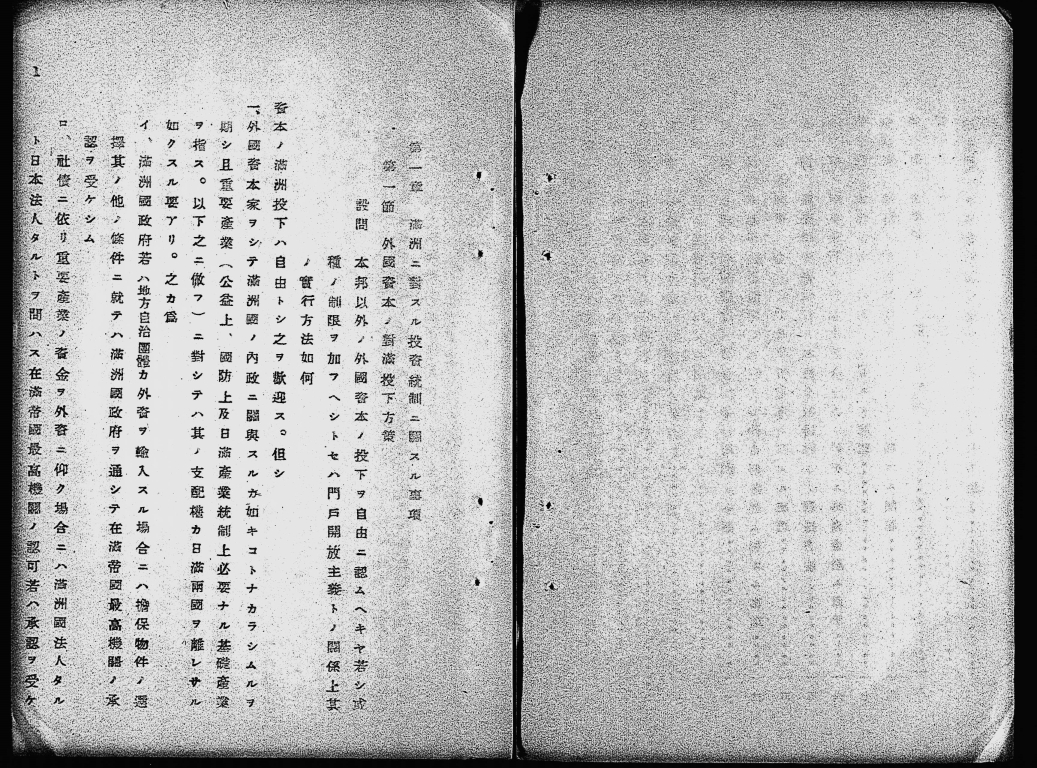 第一章 滿洲ニ對スル投資統制ニ關スル事項
第一節 外國資本ノ對滿投下方策
設問 本邦以外ノ外國資本ノ投下ヲ自由ニ認ムヘキヤ若シ或
種ノ制限ヲ加フヘシトセハ門戶開放主義トノ關係上其
ノ實行方法如何
資本ノ滿洲投下ハ自由トシ之ヲ歡迎ス。但シ
一、外國資本家ヲシテ滿洲國ノ內政ニ關與スルカ如キコトナカラシムルヲ
期シ且重要產業（公益上、國防上及日滿產業統制上必要ナル基礎產業
ヲ指ス。以下之ニ倣フ）ニ對シテハ其ノ支配權カ日滿兩國ヲ離レサル
如クスル要アリ。之カ爲
イ、滿洲國政府若ハ地方自治團體カ外資ヲ輸入スル場合ニハ擔保物件ノ選
擇其ノ他ノ條件ニ就テハ滿洲國政府ヲ通シテ在滿帝國最高機關ノ承
認ヲ受ケシム
ロ、社債ニ依リ重要產業ノ資金ヲ外資ニ仰ク場合ニハ滿洲國法人タル
ト日本法人タルトヲ問ハス在滿帝國最高機關ノ認可若ハ承認ヲ受ケ
1